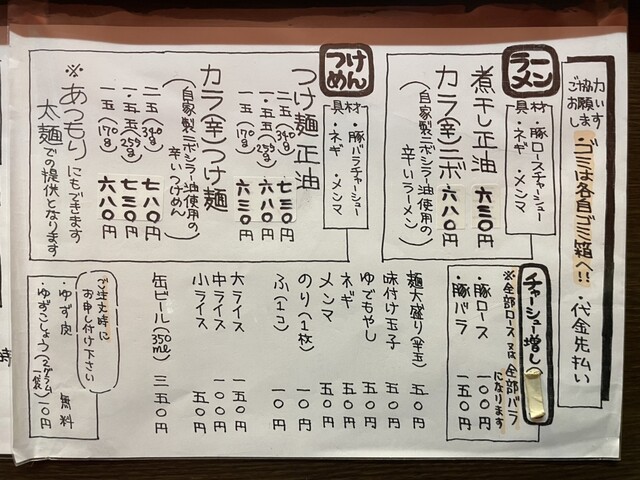 ・代金先払い
ゴミは各自ゴミ箱へ!!
ご協力
お願い
します
ラーメン
具材
・豚ロースチャーシュー
・ネギ ・メンマ
煮干し正油 六三〇円
カラ(辛)ニボ 六八〇円
(自家製ニボシラー油使用の
辛いラーメン)
つけめん
具材
・豚バラチャーシュー
・ネギ ・メンマ
つけ麺正油
二玉(340g) 七三〇円
一・五玉(255g) 六八〇円
一玉(170g) 六三〇円
カラ(辛)つけ麺
(自家製ニボシラー油使用の
辛いつけめん)
二玉(340g) 七八〇円
一・五玉(255g) 七三〇円
一玉(170g) 六八〇円
※あつもりにもできます
太麺での提供となります
チャーシュー増し
※全部ロース 又は 全部バラ
になります
・豚ロース 一〇〇円
・豚バラ 一五〇円
麺大盛り(半玉) 五〇円
味付け玉子 五〇円
ゆでもやし 五〇円
ネギ 五〇円
メンマ 五〇円
のり(1枚) 一〇円
ふ(1コ) 一〇円
大ライス 一五〇円
中ライス 一〇〇円
小ライス 五〇円
缶ビール(350ml) 三五〇円
ご注文時に
お申し付け下さい
・ゆず皮 無料
・ゆずこしょう(2グラム一袋) 一〇円